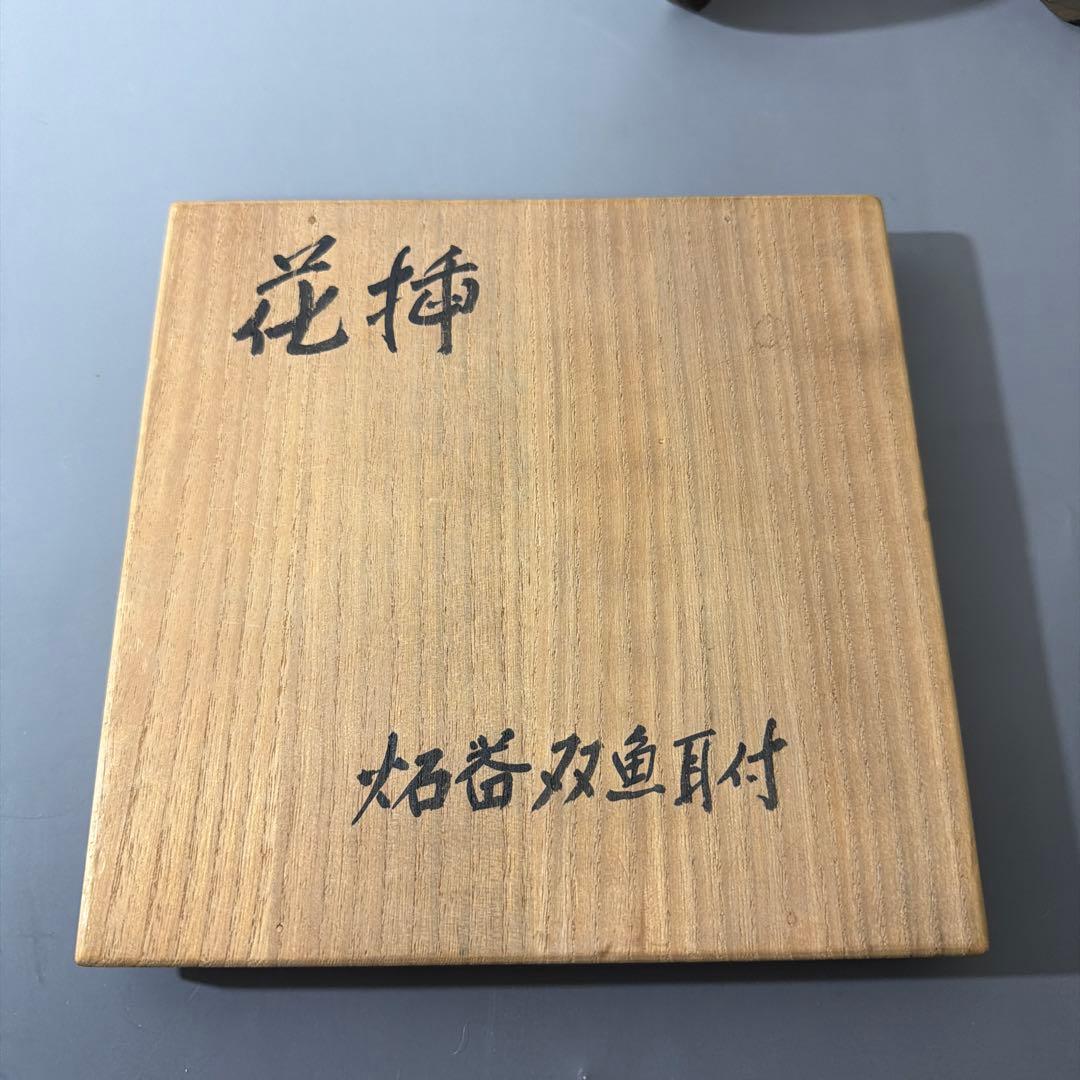 花挿
炻器双魚耳付